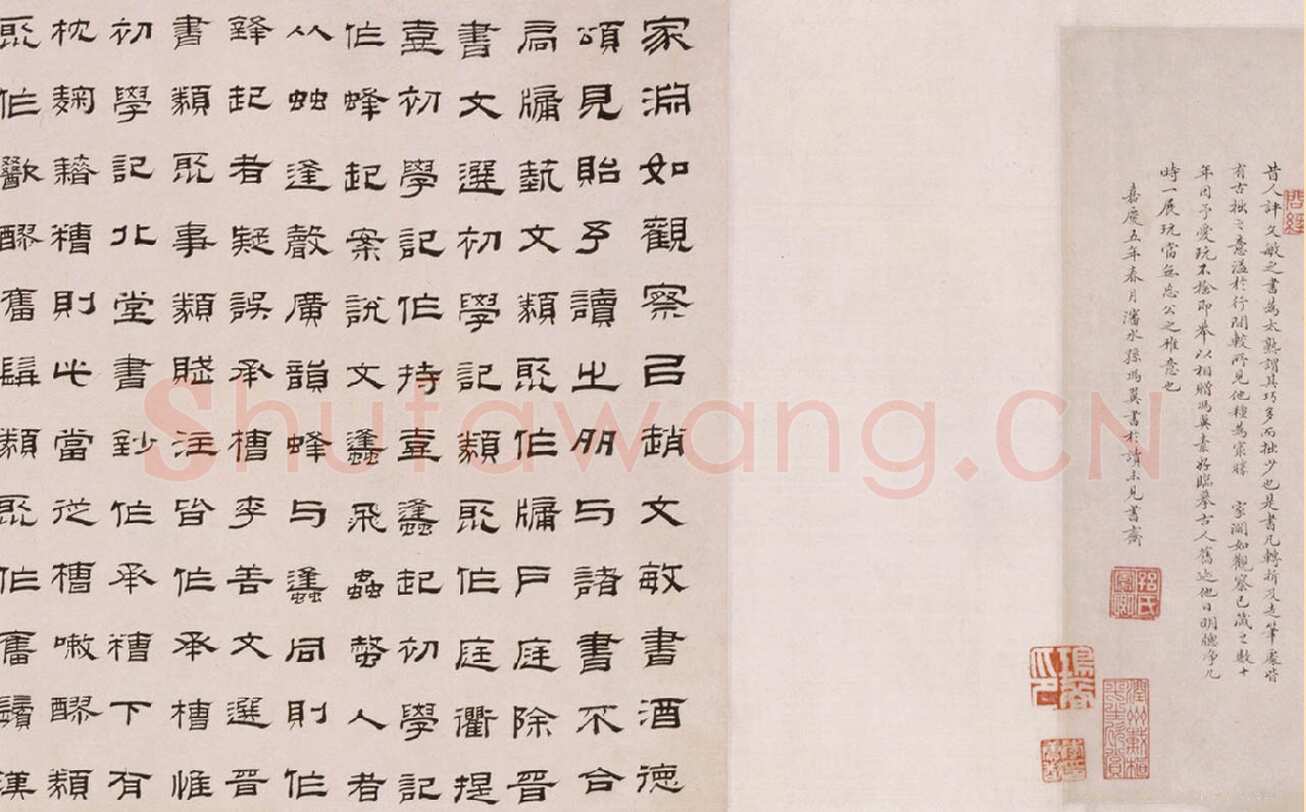 昔人評文敏之書為太熟謂其巧多而拙少也是書凡轉折及走筆處皆
有古拙之意溢於行間較所見他種為宲勝 家淵如觀察已藏之數十
年因予愛玩不捨即舉以相贈馮異素好臨摹古人舊迹他日明牕净几
時一展玩當無忘公之雅意也
嘉慶五年春月瀋水孫馮翼書於讀未見書齋
家淵如觀察吕趙文敏書酒德
頌見貽予讀之肭与諸書不合
扃牖藝文類聚作牖戶庭除晉
書文選初學記類聚作庭衢提
壺初學記作持壺蠭起初學記
作蜂起案說文蠭飛蟲螫人者
从䖵逢聲廣韻蜂与蠭同則作
鋒起者疑誤承槽李善文選晉
書類聚事類賦注皆作承槽惟
初學記北堂書鈔作承糟下有
枕麴藉糟則此當從槽嗽醪類
聚作歠醪奮髯類聚作奮鬚漢
Shufawang.CN